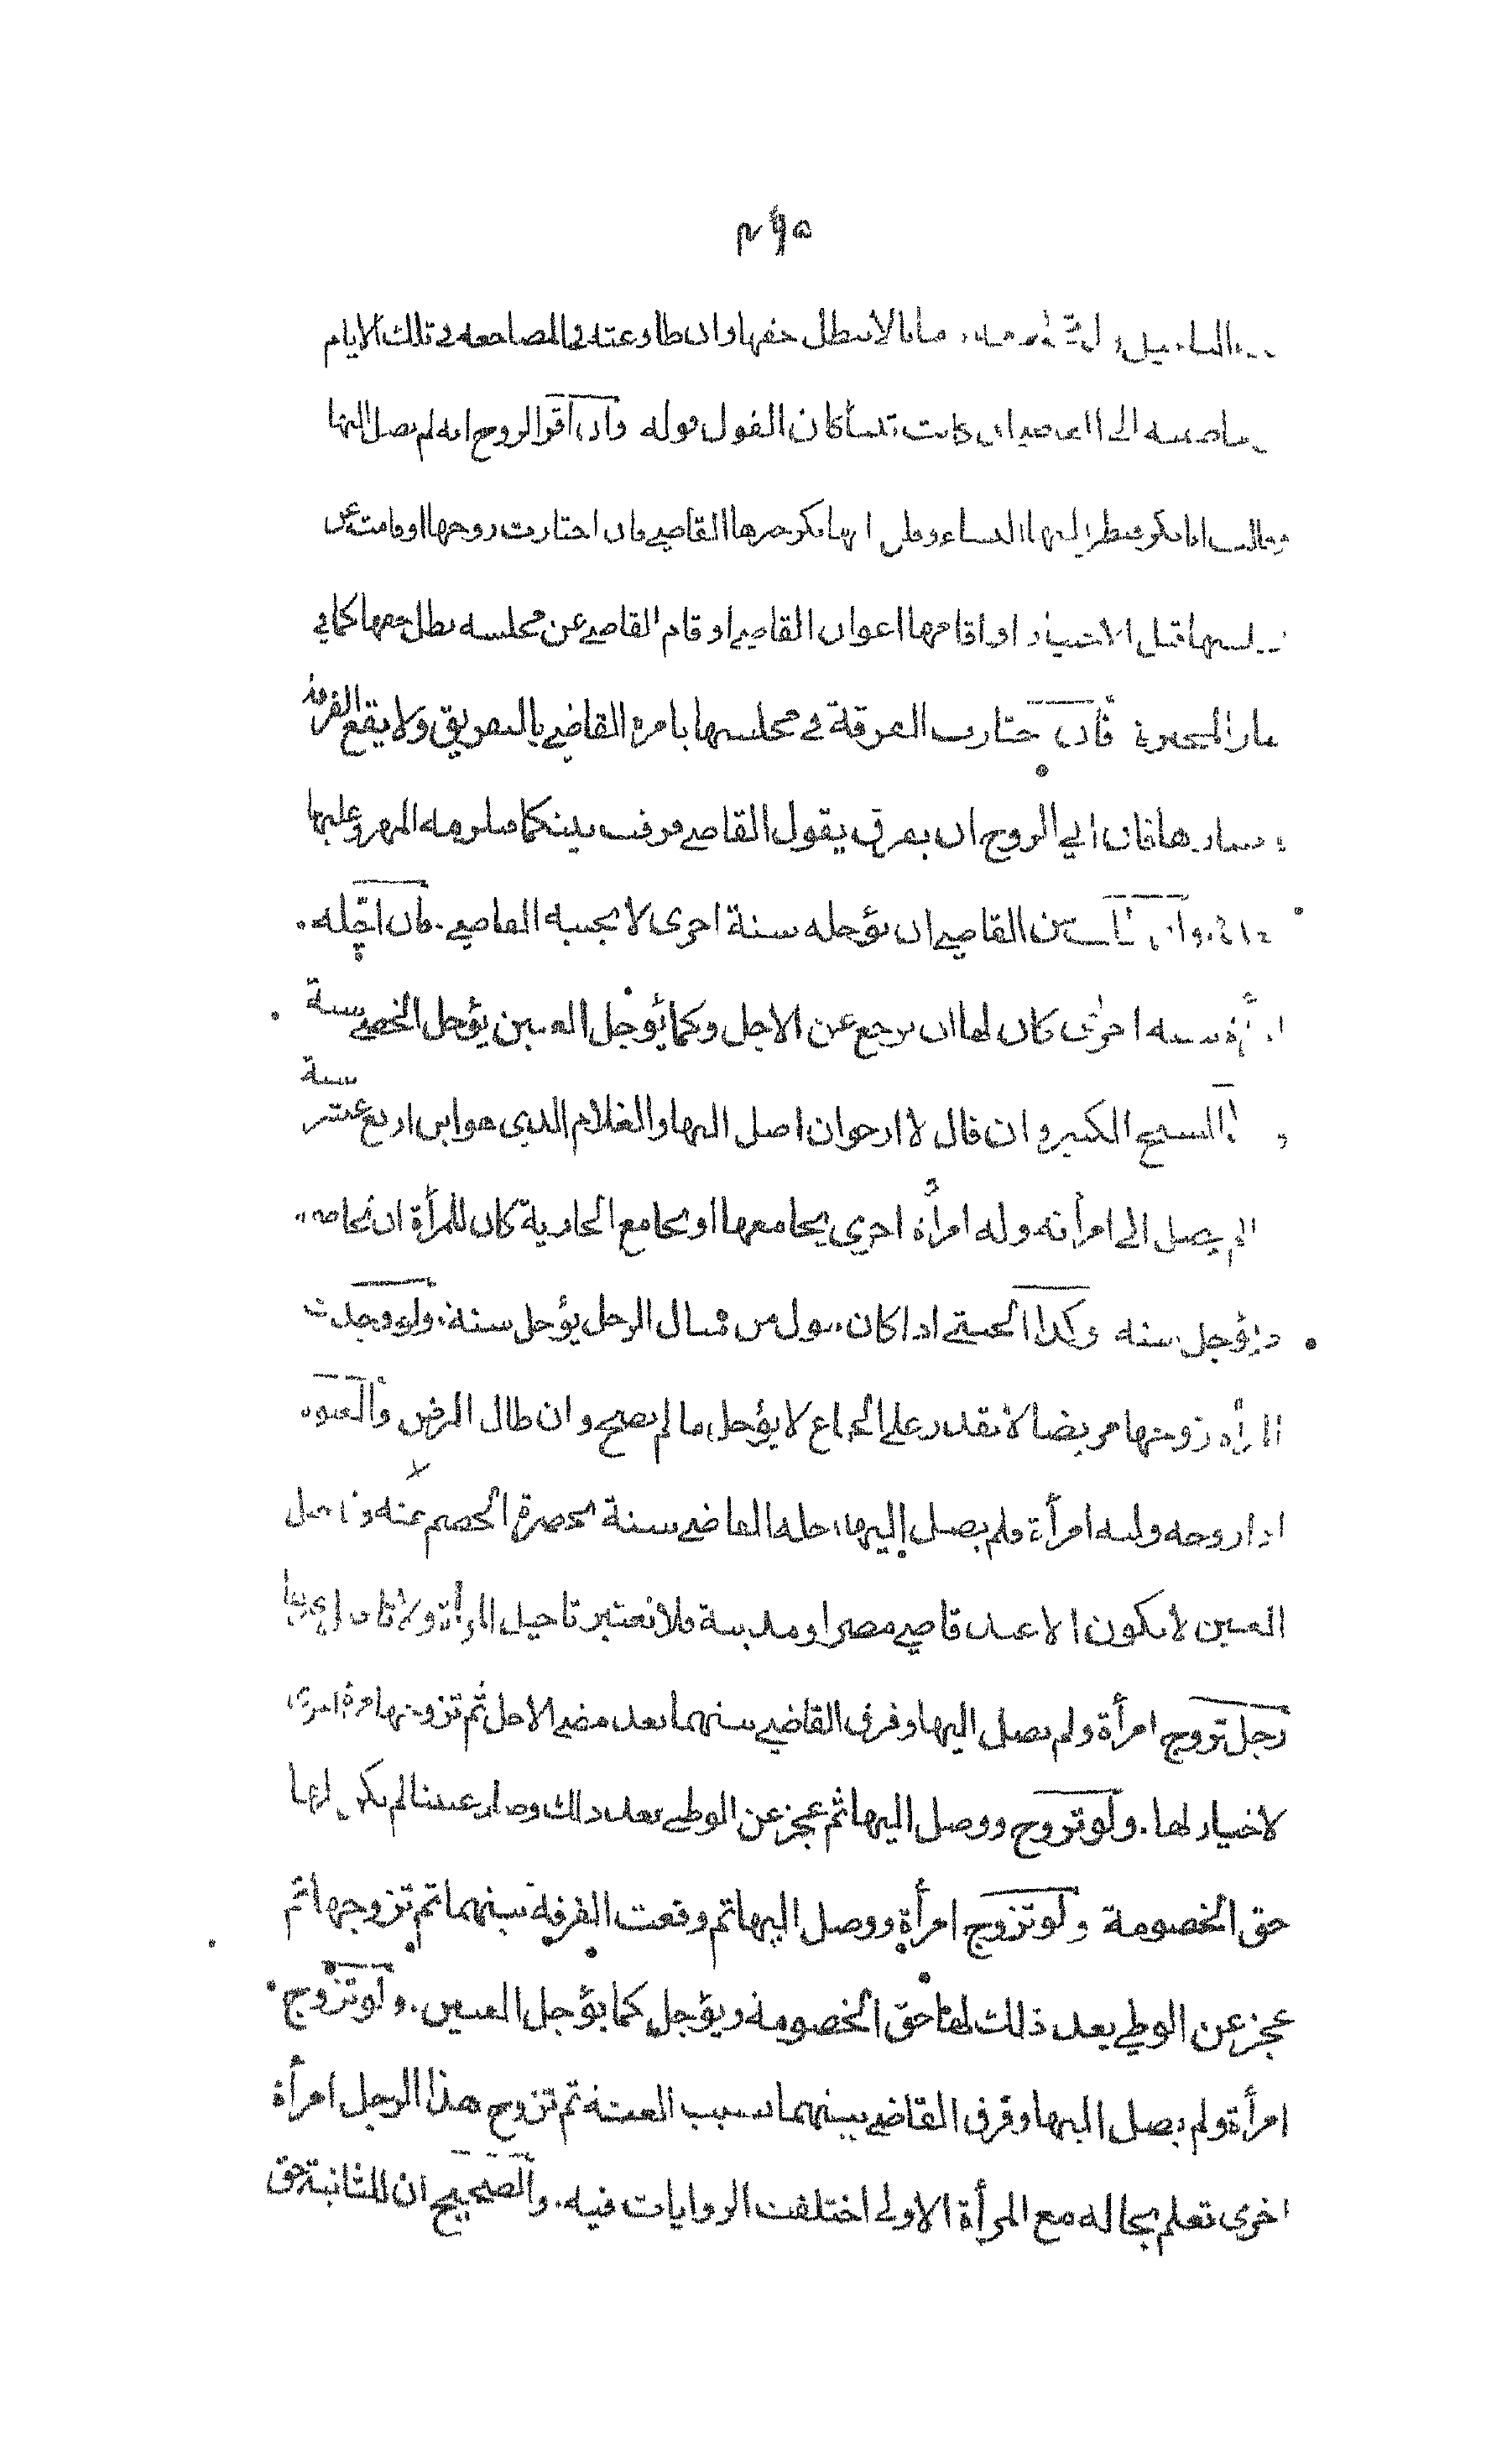 لا يبطل حقها وان طاوعته في المضاجعة في تلك الايام
كان القول قوله وان اقر الزوج انه لم يصل اليها
وقالت انا بكر ينظر اليها النساء وقلن انها بكر خيرها القاضي فان اختارت زوجها او قامت عن
مجلسها قبل الاختيار او اقامها اعوان القاضي او قام القاضي عن مجلسه بطل حقها كما في
فان اختارت الفرقة في مجلسها يامره القاضي بالتفريق ولا يقع الفرقة
فان ابي الزوج ان يفرق يقول القاضي فرقت بينكما فيلزمه المهر وعليها
القاضي ان يؤجله سنة اخرى لا يجيبه القاضي. فان اجله
سنه اخرى كان لها ان ترجع عن الاجل وكما يؤجل العنين يؤجل الخصي سنة
الشيخ الكبير وان قال لا ارجو ان اصل اليها والغلام الذي هو ابن اربع عشر سنة
لم يصل الى امرأته وله امرأة اخرى يجامعها او يجامع الجارية كان للمرأة ان تخاصم
ويؤجل سنه وكذا الخنثى اذا كان يبول من مبال الرجل يؤجل سنة. ولو وجدت
المرأة زوجها مريضا لا يقدر على الجماع لا يؤجل ما لم يصح وان طال المرض والمعتوه
اذا زوجه وليه امرأة فلم يصل اليها اجله القاضي سنة بحضرة الخصم عنه
العنين لا يكون الا عند قاضي مصر او مدينة فلا تعتبر تاجيل المرأة ولا
رجل تزوج امرأة ولم يصل اليها وفرق القاضي بينهما بعد مضي الاجل ثم تزوجها مرة اخرى
لا خيار لها. ولو تزوج ووصل اليها ثم عجز عن الوطي بعد ذلك وصار عنينا لم يكن لها
حق الخصومة ولو تزوج امرأة ووصل اليها ثم وقعت الفرقة بينهما ثم تزوجها ثم
عجز عن الوطي بعد ذلك لها حق الخصومة ويؤجل كما يؤجل العنين. ولو تزوج
امرأة ولم يصل اليها وفرق القاضي بينهما بسبب العنة ثم تزوج هذا الرجل امرأة
اخرى تعلم بحاله مع المرأة الاولى اختلفت الروايات فيه. والصحيح ان للثانية حق